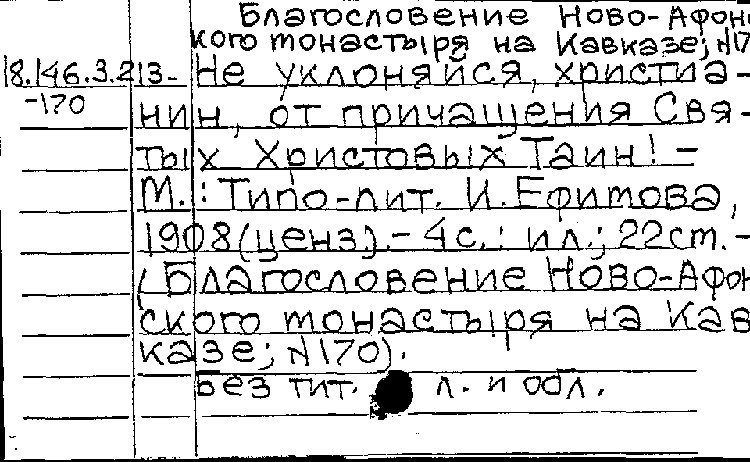 Благословение Ново-Афон
кого монастыря на Кавказе; №17
18.146.3.213- Не уклоняйся, христиа-
-170
нин, от причащения Свя-
тых Христовых Таин! -
М.: Типо-лит. И. Ефимова,
1908(ценз). - 4с.: ил.; 22см. -
(Благословение Ново-Афон
ского монастыря на Кав
казе; №170).
Без тит. л. и обл.